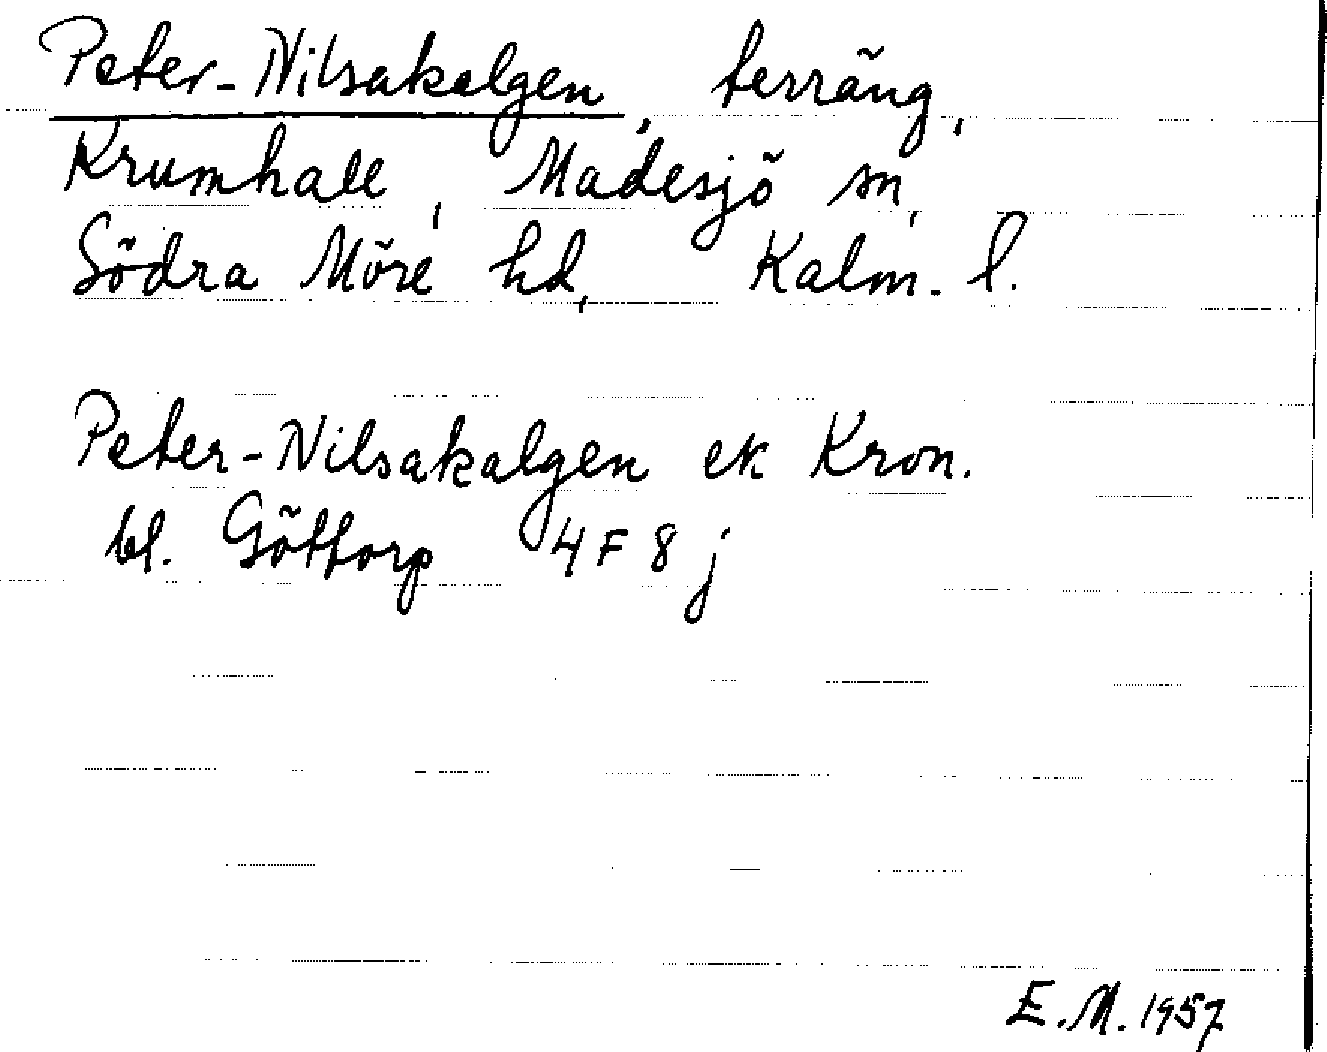 Peter-Nilsakalgen, terräng,
Krumhall, Madesjö sn,
Södra Möre hd, Kalm. l.
Peter-Nilsakalgen ek Kron.
bl. Göttorp 4F 8j
E.M. 1957